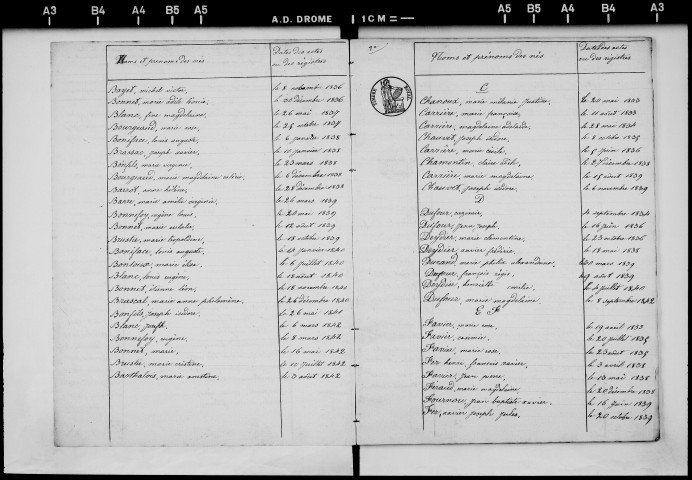 A3 B4 A4 B5 A5 A.D. DROME 1 CM A5 B5 A4 B4 A3
Noms et prénoms des nés
Dates des actes
ou des régistres
Bayet, michel victor, le 8 1836
Bonnet, marie adèle Léonie, le 30 décembre 1836
Blanc, magdelaine, le 26 mai 1837
Bourgeaud, marie rose, le 25 octobre 1837
Boniface, louis auguste, le 6 janvier 1838
Brassac, joseph xavier, le 10 janvier 1838
Bonfils, marie virginie, le 23 mars 1838
Bourgeaud, marie magdelaine valérie, le 8 décembre 1838
Barrot, anne hélène, le 28 décembre 1838
Barre, marie amélie eugénie, le 26 mars 1839
Bonnefoy, eugène louis, le 20 mai 1839
Bonnet, marie, le 12 août 1839
Brusle, marie léopoldine, le 18 octobre 1839
Boniface, louis auguste, le 27 janvier 1840
Bonthoux, marie élisa, le 6 juillet 1840
Blanc, louis eugène, le 18 août 1840
Bonnet, étienne léon, le 18 novembre 1840
Brascal, marie anne philomène, le 26 décembre 1840
Bonfils, joseph isidore, le 26 mai 1841
Blanc, joseph, le 6 mars 1842
Bonnefoy, eugène, le 8 mars 1842
Bonnet, marie, le 16 mai 1842
Brusle, marie cristine, le 10 juillet 1842
Barthalois, marie, le 3 août 1842
Noms et prénoms des nés
Dates des actes
ou des régistres
C
Chanoux, marie mélanie justine, le 20 mai 1833
Carrière, marie françoise, le 11 août 1833
Carrière, magdelaine adélaïde, le 28 mai 1834
Chauvet, joseph isidore, le 8 octobre 1835
Carrière, marie cécile, le 5 juin 1836
Chamontin, claire adèle, le 27 décembre 1838
Carrière, marie magdelaine, le 15 août 1839
Chauvet, joseph isidore, le 6 novembre 1839
D
Dufour, eugénie, le septembre 1834
Dufour, jean joseph, le 16 juin 1836
Deydier, marie clémentine, le 23 octobre 1836
Deydier, xavier frédéric, le 18 mai 1838
Durand, marie alexandrine, le 30 mars 1839
Dufour, françois régis, le 9 août 1839
Deydier, henriette émilie, le 4 juillet 1840
Dufour, marie magdelaine, le 8 septembre 1842
E F
Favier, marie rose, le 19 avril 1833
Favier, casimir, le 20 juillet 1835
Favier, marie rose, le 23 août 1835
Fer henri, françois xavier, le 3 avril 1838
Favier, jean pierre, le 13 mai 1838
Féraud, marie magdelaine le 20 décembre 1838
Fournou, jean baptiste xavier, le 16 juin 1839
Fer, xavier joseph jules, le 20 octobre 1839